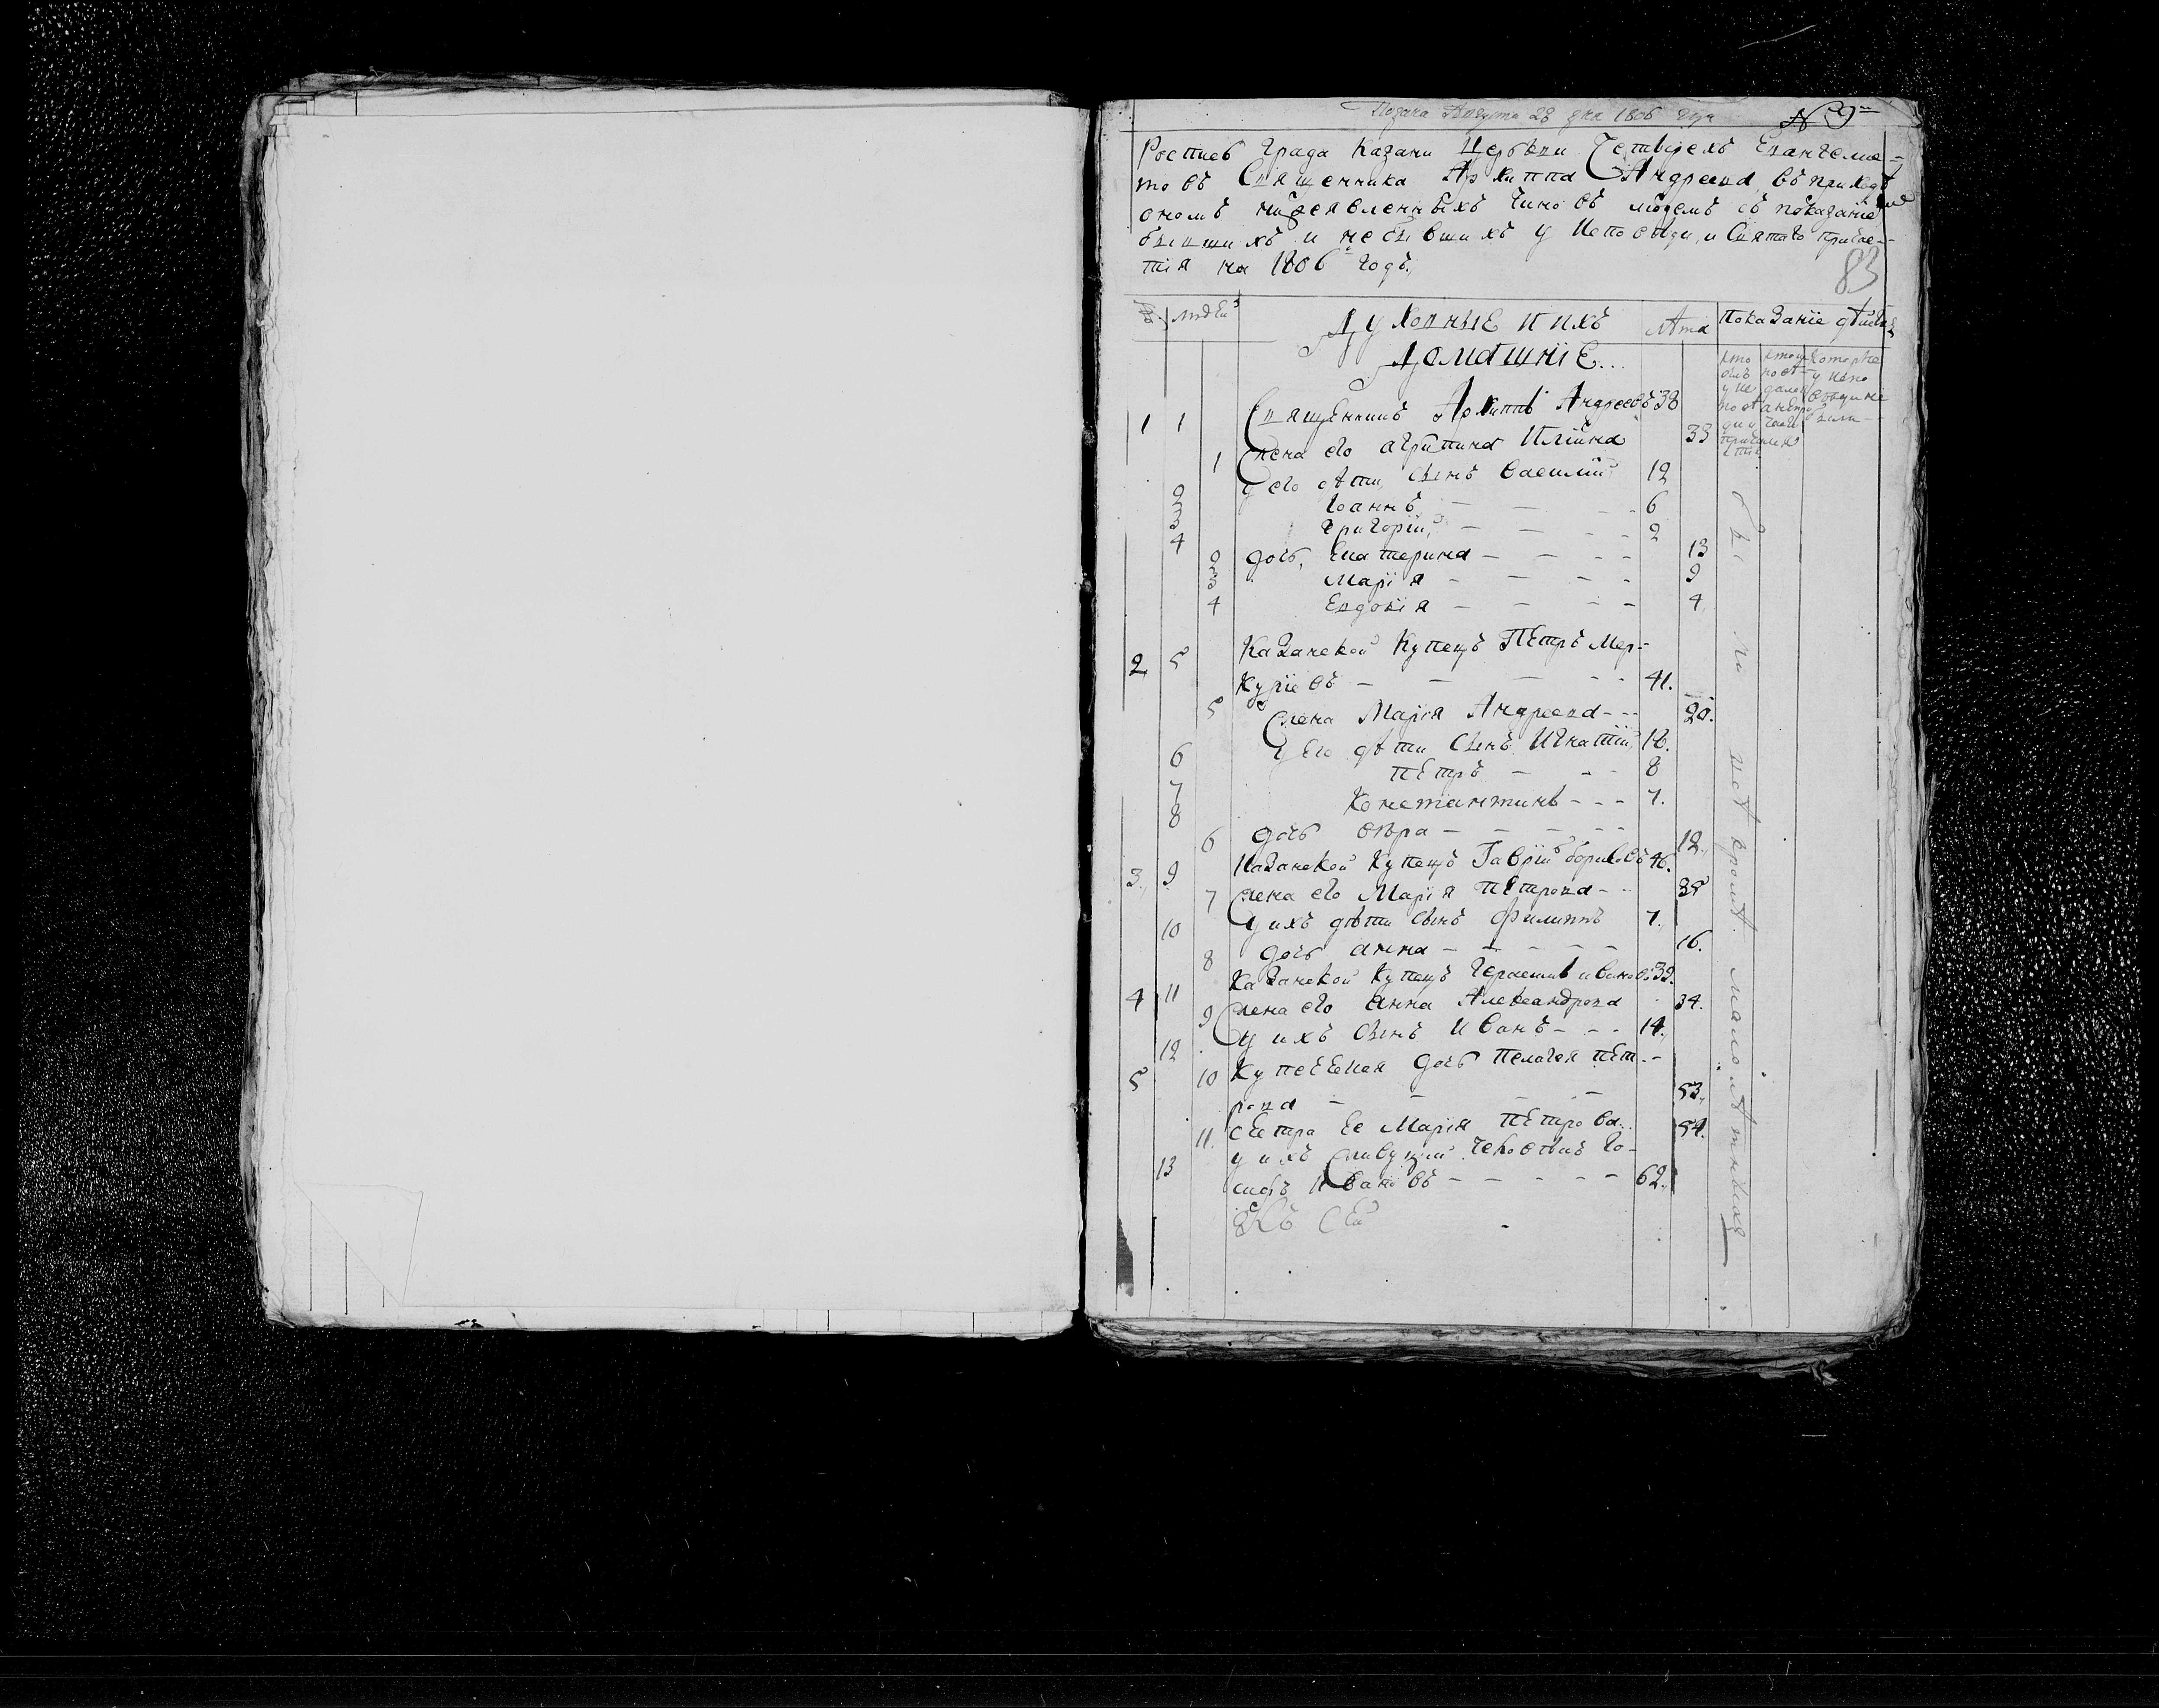 Подана Августа 28 дня 1806 года № 9
Роспись града Казани Церькви Четырехъ Евангелис-
товъ Священника Архиппа Андреева въ приходѣ
ономъ нижеявленныхъ чиновъ людемъ съ показание
бывшихъ и не бывшихъ у Исповѣди, и Святаго причас-
тїя на 1806 годъ.
83
людей Духовные и ихъ Лѣта Показанїе дѣйств
домашнїе
1 1 Священникъ Архиппъ Андреевъ 38
1 Жена его Агрипина Илїина 33
2 у его дѣти, сынъ Василїй 12
3 Іоаннъ - - - 6
4 Григорїй, - - - 2
2 дочь, Екатерина - - - 13
3 Марїя - - - - 9
4 Евдокїя - - - - 4
2 5 Казанской Купецъ Петръ Мер-
курїевъ - - - - - 41.
5 Жена Марїя Андреева - - - 20.
6 у его дѣти сынъ Игнатїй 16.
7 Петръ - - - 8
8 Константинъ - - - 7.
6 дочь Вѣра - - - - - 12.
3. 9 Казанской Купецъ Гаврїй Борисовъ 46.
7 Жена его Марїя Петрова - - 35
10 у ихъ дѣти сынъ Филиппъ 7.
8 дочь Анна - - - - - 16.
4 11 Казанской Купецъ Герасимъ Ивановъ 39.
9 Жена его Анна Александрова 34.
12 у ихъ сынъ Иванъ - - - 14.
5 10 Купеческая дочь Пелагея Пет-
рова - - - - 53.
11. сестра ее Марїя Петрова .. 54.
13 у ихъ
Ивановъ - - - - - 62.
были всѣ кромѣ малолѣтныхъ